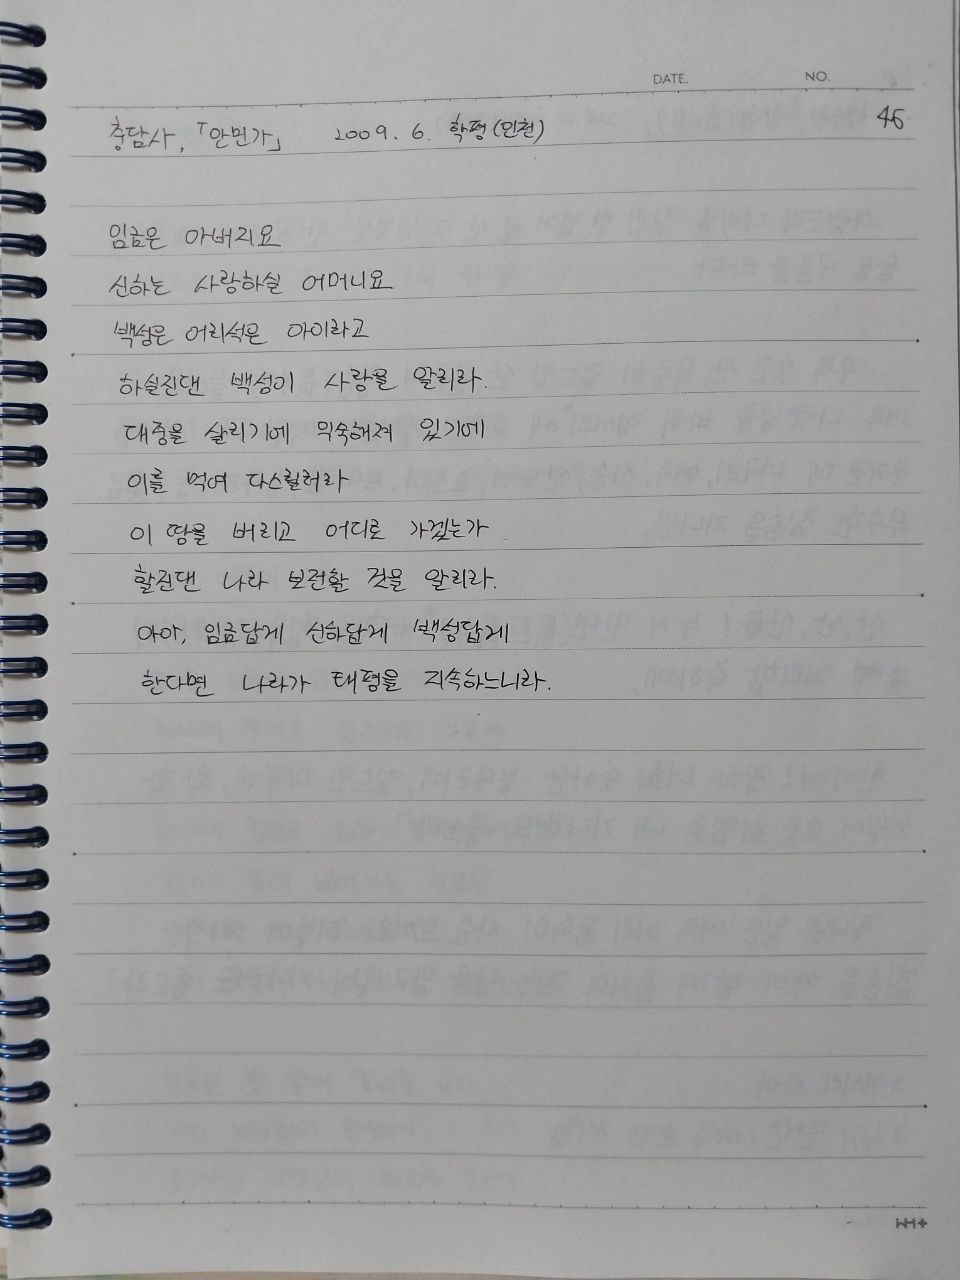 DATE. NO.
충담사, 「안민가」 2009. 6. 학평(인천) 46
임금은 아버지요
신하는 사랑하실 어머니요
백성은 어리석은 아이라고
하실진댄 백성이 사랑을 알리라.
대중을 살리기에 익숙해져 있기에
이를 먹여 다스릴러라
이 땅을 버리고 어디로 가겠는가
할진댄 나라 보전할 것을 알리라.
아아, 임금답게 신하답게 백성답게
한다면 나라가 태평을 지속하느니라.